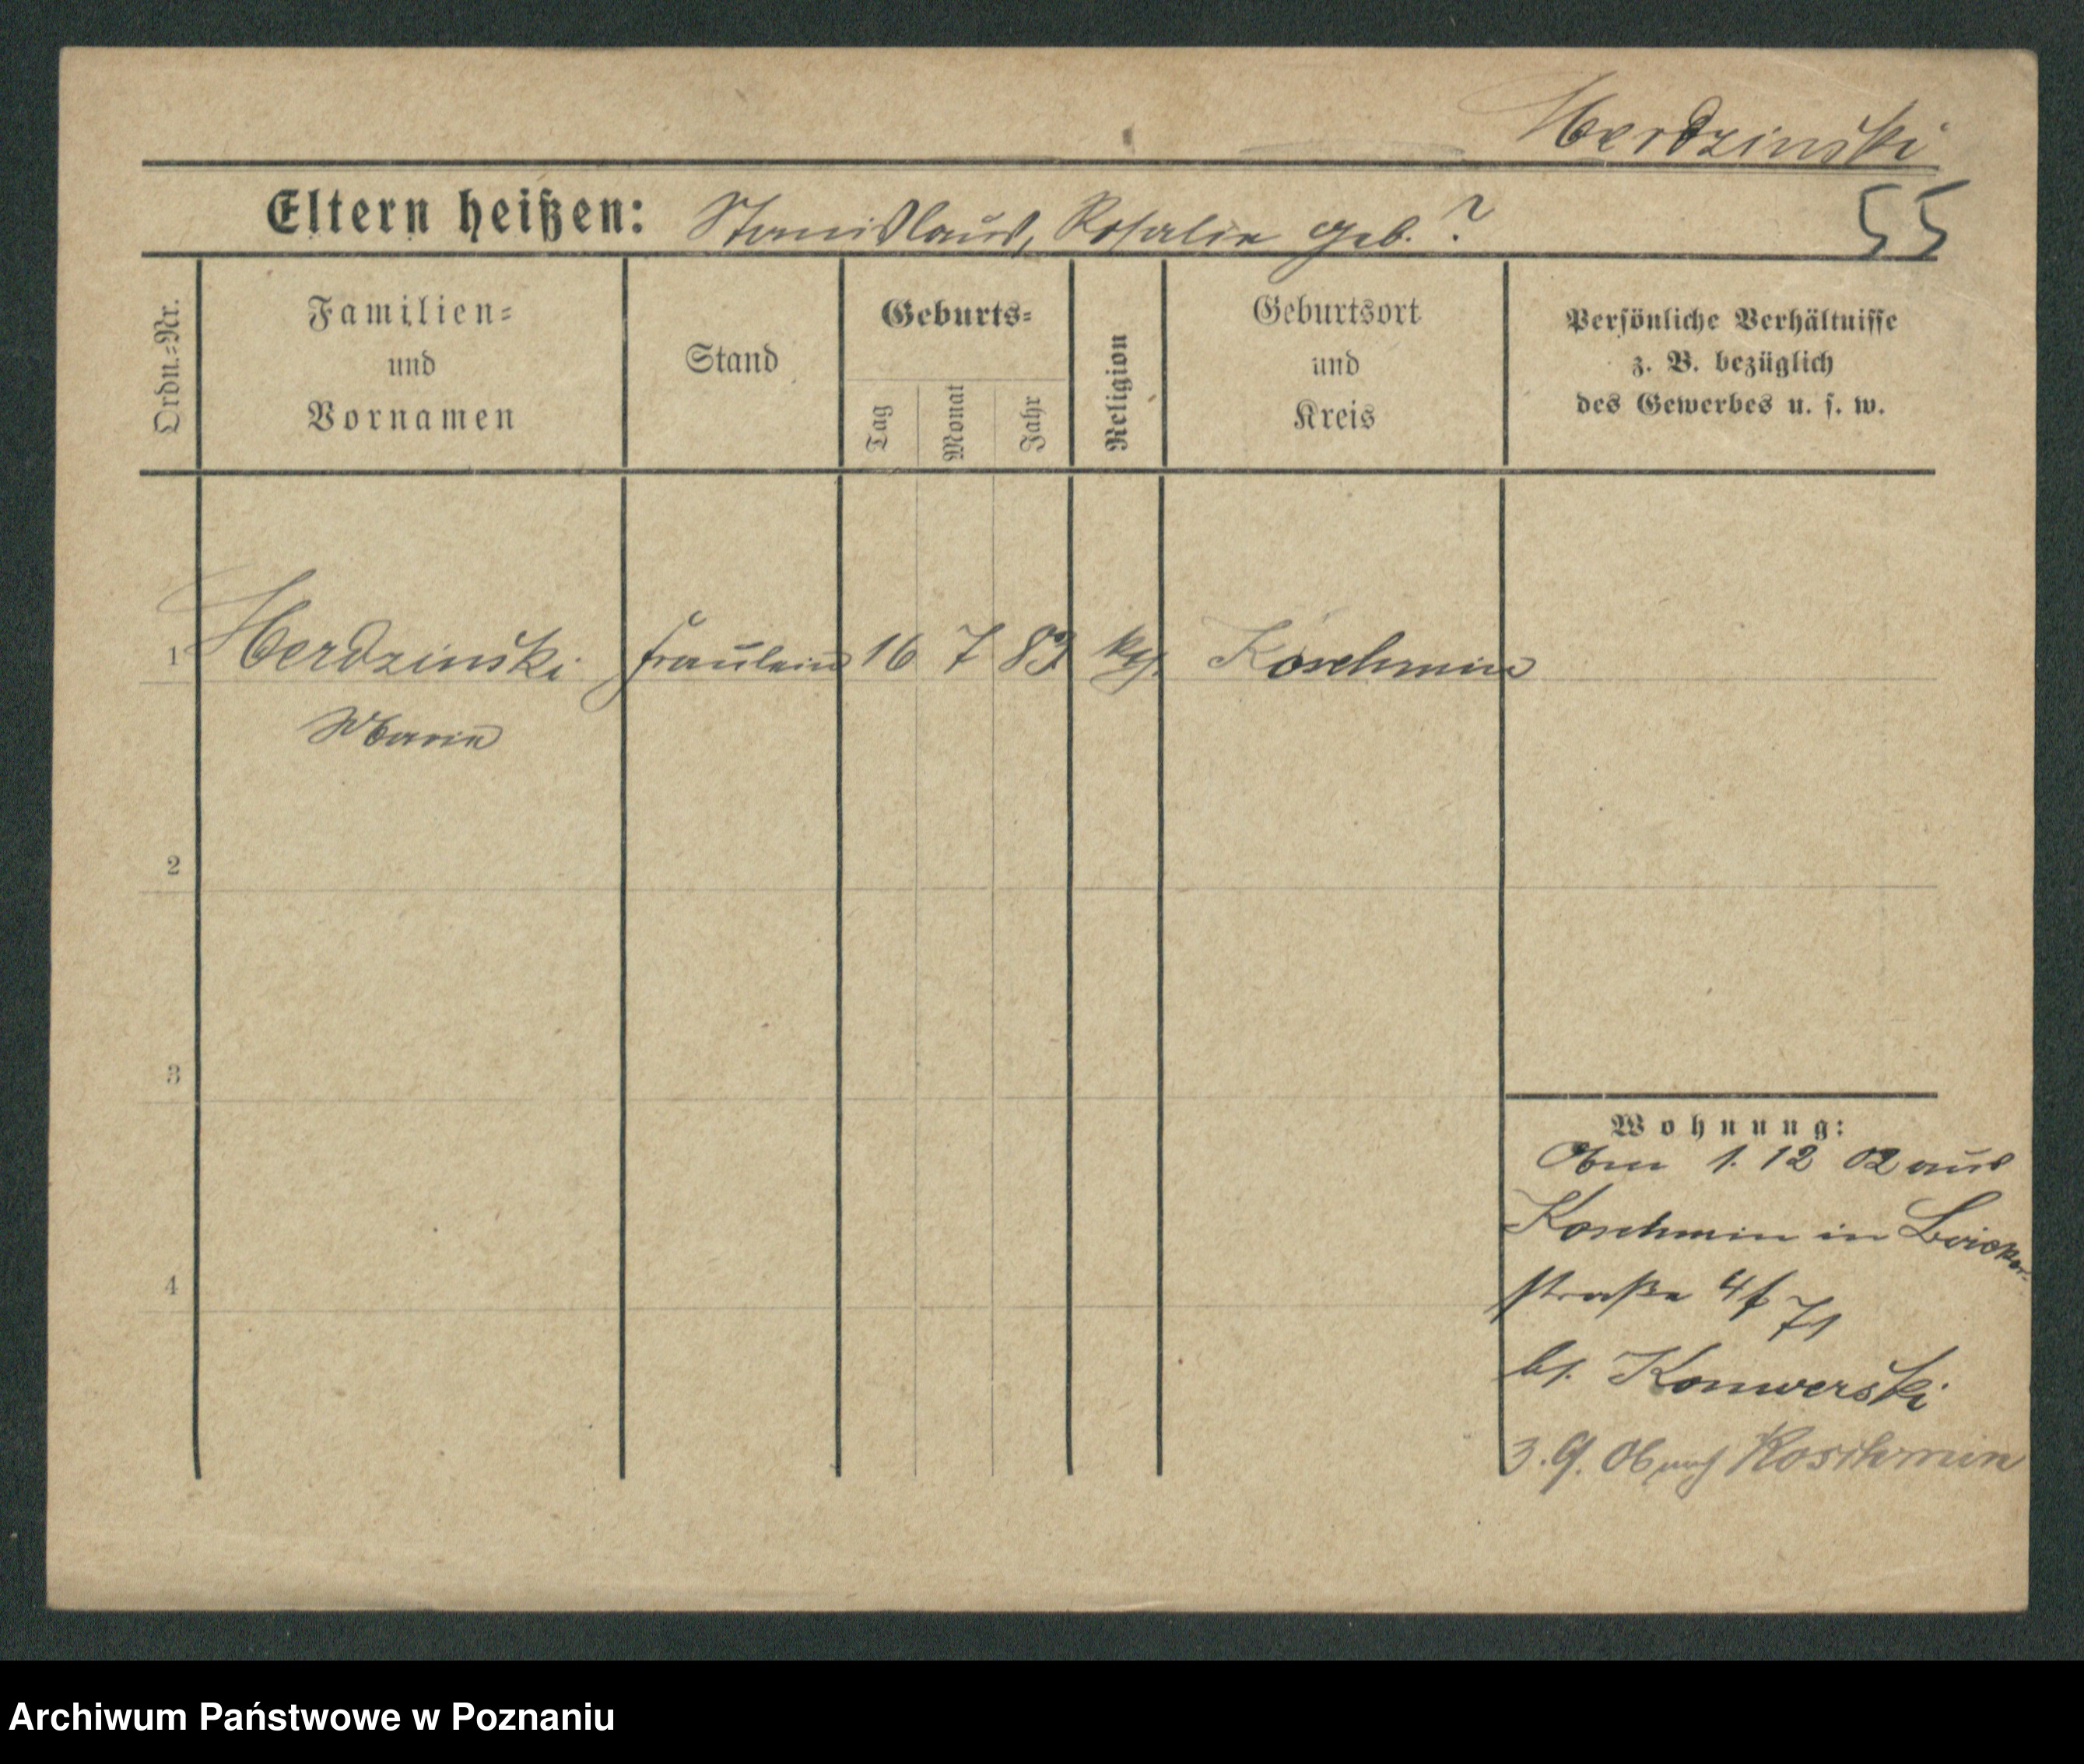 Herdzinski
Eltern heißen: Stanislaus, Rosalie geb. ?
55
Ordn.=Nr.
Familien=
und
Vornamen
Stand
Geburts=
Tag
Monat
Jahr
Religion
Geburtsort
und
Kreis
Persönliche Verhältnisse
z. B. bezüglich
des Gewerbes u. s. w.
1 Herdzinski Fräulein 16 7 83 Koschmin
Marie
2
3
4
Wohnung:
1. 12 02 aus
Koschmin in
straße 71
bf. Konwerski
3. 9. 06 nach Koschmin
Archiwum Państwowe w Poznaniu